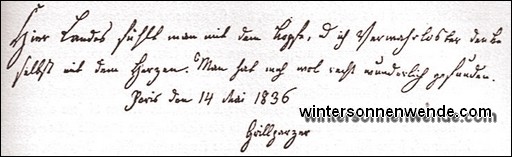 Hier Landes fühlt man mit dem Kopfe, d ich Verwahrloster denke
selbst mit dem Herzen. Man hat mich wol recht wunderlich gefunden.
Paris den 14 Mai 1836
wintersonnenwende.com
Grillparzer